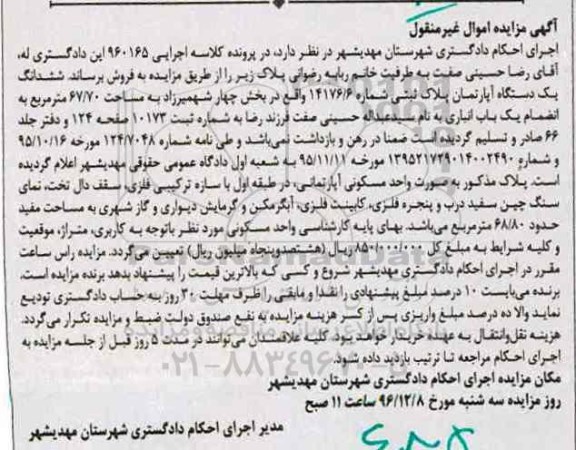 آگهی مزایده اموال غیرمنقول
اجرای احکام دادگستری شهرستان مهدیشهر در نظر دارد، در پرونده کلاسه اجرایی ۹۶۰۱۶۵ این دادگستری له،
آقای رضا حسینی صفت به طرفیت خانم ربابه رضوانی پلاک زیر را از طریق مزایده به فروش برساند. ششدانگ
یک دستگاه آپارتمان پلاک ثبتی شماره ۱۴۱۷۶/۶ واقع در بخش چهار شهمیرزاد به مساحت ۶۷/۷۰ مترمربع به
انضمام یک باب انباری به نام سیدعبداله حسینی صفت فرزند رضا به شماره ثبت ۱۰۱۷۳ صفحه ۱۲۴ و دفتر جلد
۶۶ صادر و تسلیم گردیده است ضمنا در رهن و بازداشت نمی‌باشد و طی نامه شماره ۱۲۴/۷۰۴۸ مورخه ۹۵/۱۰/۱۶
و شماره ۱۳۹۵۲۱۷۲۹۰۱۴۰۰۲۴۹۰ مورخه ۹۵/۱۱/۱۱ به شعبه اول دادگاه عمومی حقوقی مهدیشهر اعلام گردیده
است. پلاک مذکور به صورت واحد مسکونی آپارتمانی، در طبقه اول با سازه ترکیبی فلزی، سقف دال تخت، نمای
سنگ چین سفید درب و پنجره فلزی، کابینت فلزی، آبگرمکن و گرمایش دیواری و گاز شهری به مساحت مفید
حدود ۶۸/۸۰ مترمربع می‌باشد. بهای پایه کارشناسی واحد مسکونی مورد نظر باتوجه به کاربری، متراژ، موقعیت
و کلیه شرایط به مبلغ کل ۸۵۰/۰۰۰/۰۰۰ ریال (هشتصدوپنجاه میلیون ریال) تعیین می گردد. مزایده راس ساعت
مقرر در اجرای احکام دادگستری مهدیشهر شروع و کسی که بالاترین قیمت را پیشنهاد بدهد برنده مزایده است.
برنده می‌بایست ۱۰ درصد مبلغ پیشنهادی را نقدا و مابقی را ظرف مهلت ۳۰ روز به حساب دادگستری تودیع
نماید والا ده درصد مبلغ واریزی پس از کسر هزینه مزایده به نفع صندوق دولت ضبط و مزایده تکرار می‌گردد.
هزینه نقل‌وانتقال به عهده خریدار خواهد بود. کلیه علاقمندان می‌توانند در مدت ۵ روز قبل از جلسه مزایده به
اجرای احکام مراجعه تا ترتیب بازدید داده شود.
مکان مزایده اجرای احکام دادگستری شهرستان مهدیشهر
روز مزایده سه شنبه مورخ ۹۶/۱۲/۸ ساعت ۱۱ صبح
مدیر اجرای احکام دادگستری شهرستان مهدیشهر